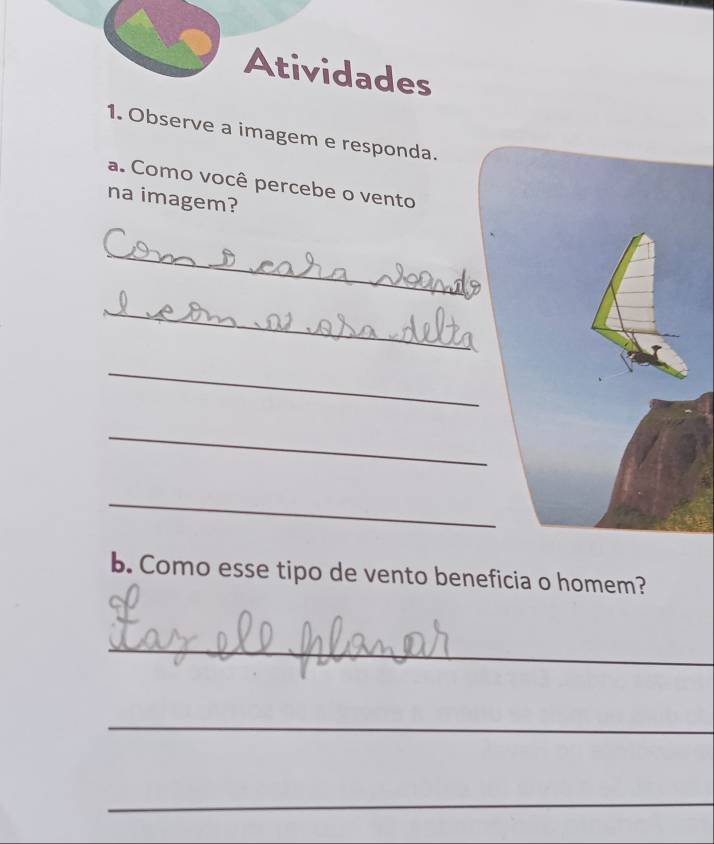 Atividades
1. Observe a imagem e responda.
a. Como você percebe o vento
na imagem?
Com o cara voando
e com a asa delta
b. Como esse tipo de vento beneficia o homem?
faz ele planar